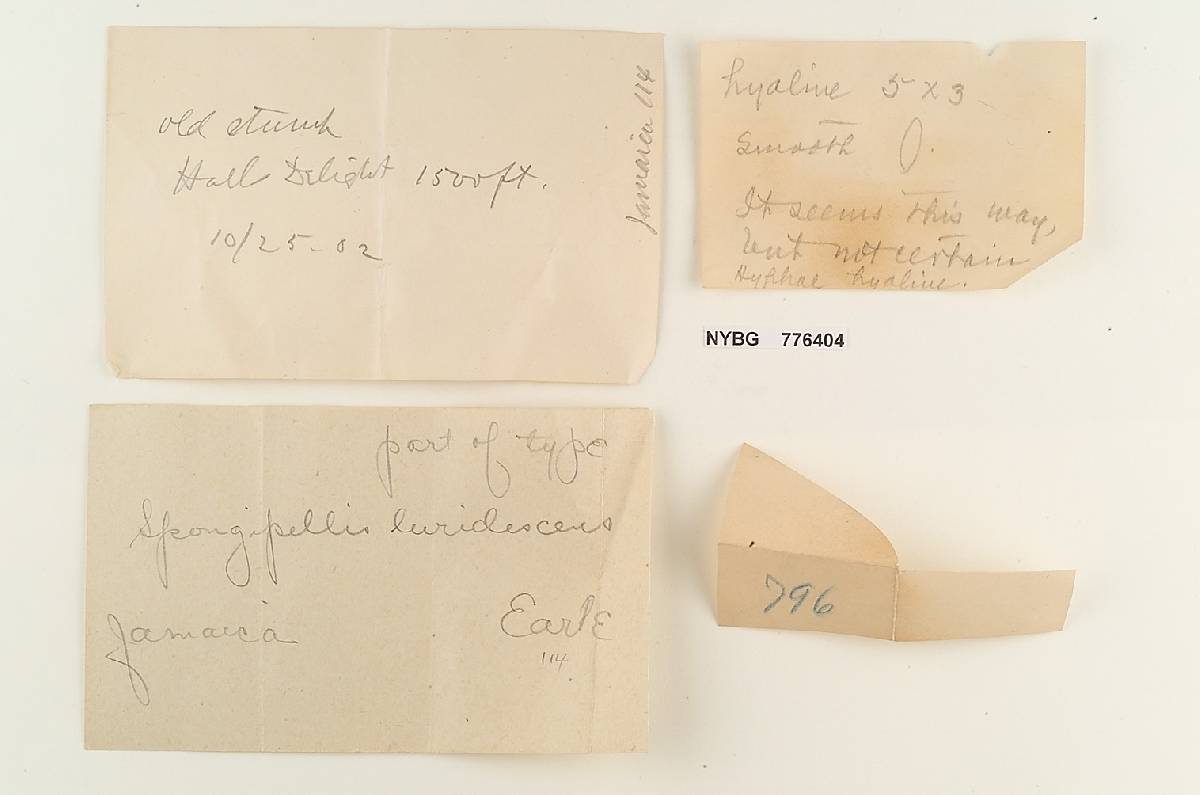 old stump
Hall Delight 1500 ft.
10/25-02
Jamaica 114
hyaline 5 x 3
smooth 0.
It seems this way,
but not certain
Hyphae hyaline.
NYBG 776404
part of type
Spongipellis luridescens
Jamaica Earle
114
796